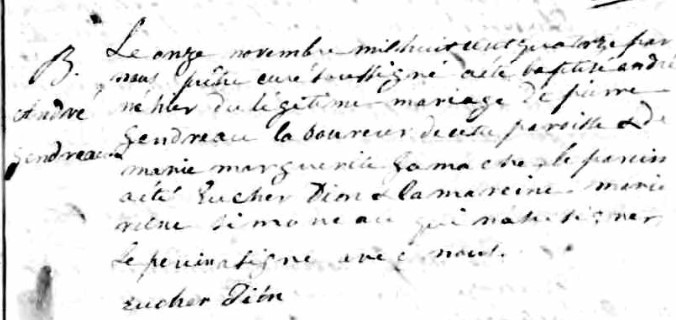 B.
André
Gendreau
Le onze novembre mil huit cent quatorze par
nous prêtre curé soussigné a été baptisé andré
né hier du légitime mariage de pierre
Gendreau laboureur de cette paroisse & de
marie marguerite Gamache, le parein
a été Eucher Dion & la mareine marie
reine Simoneau qui n'a su signer
Le parein a signé avec nous.
Eucher Dion